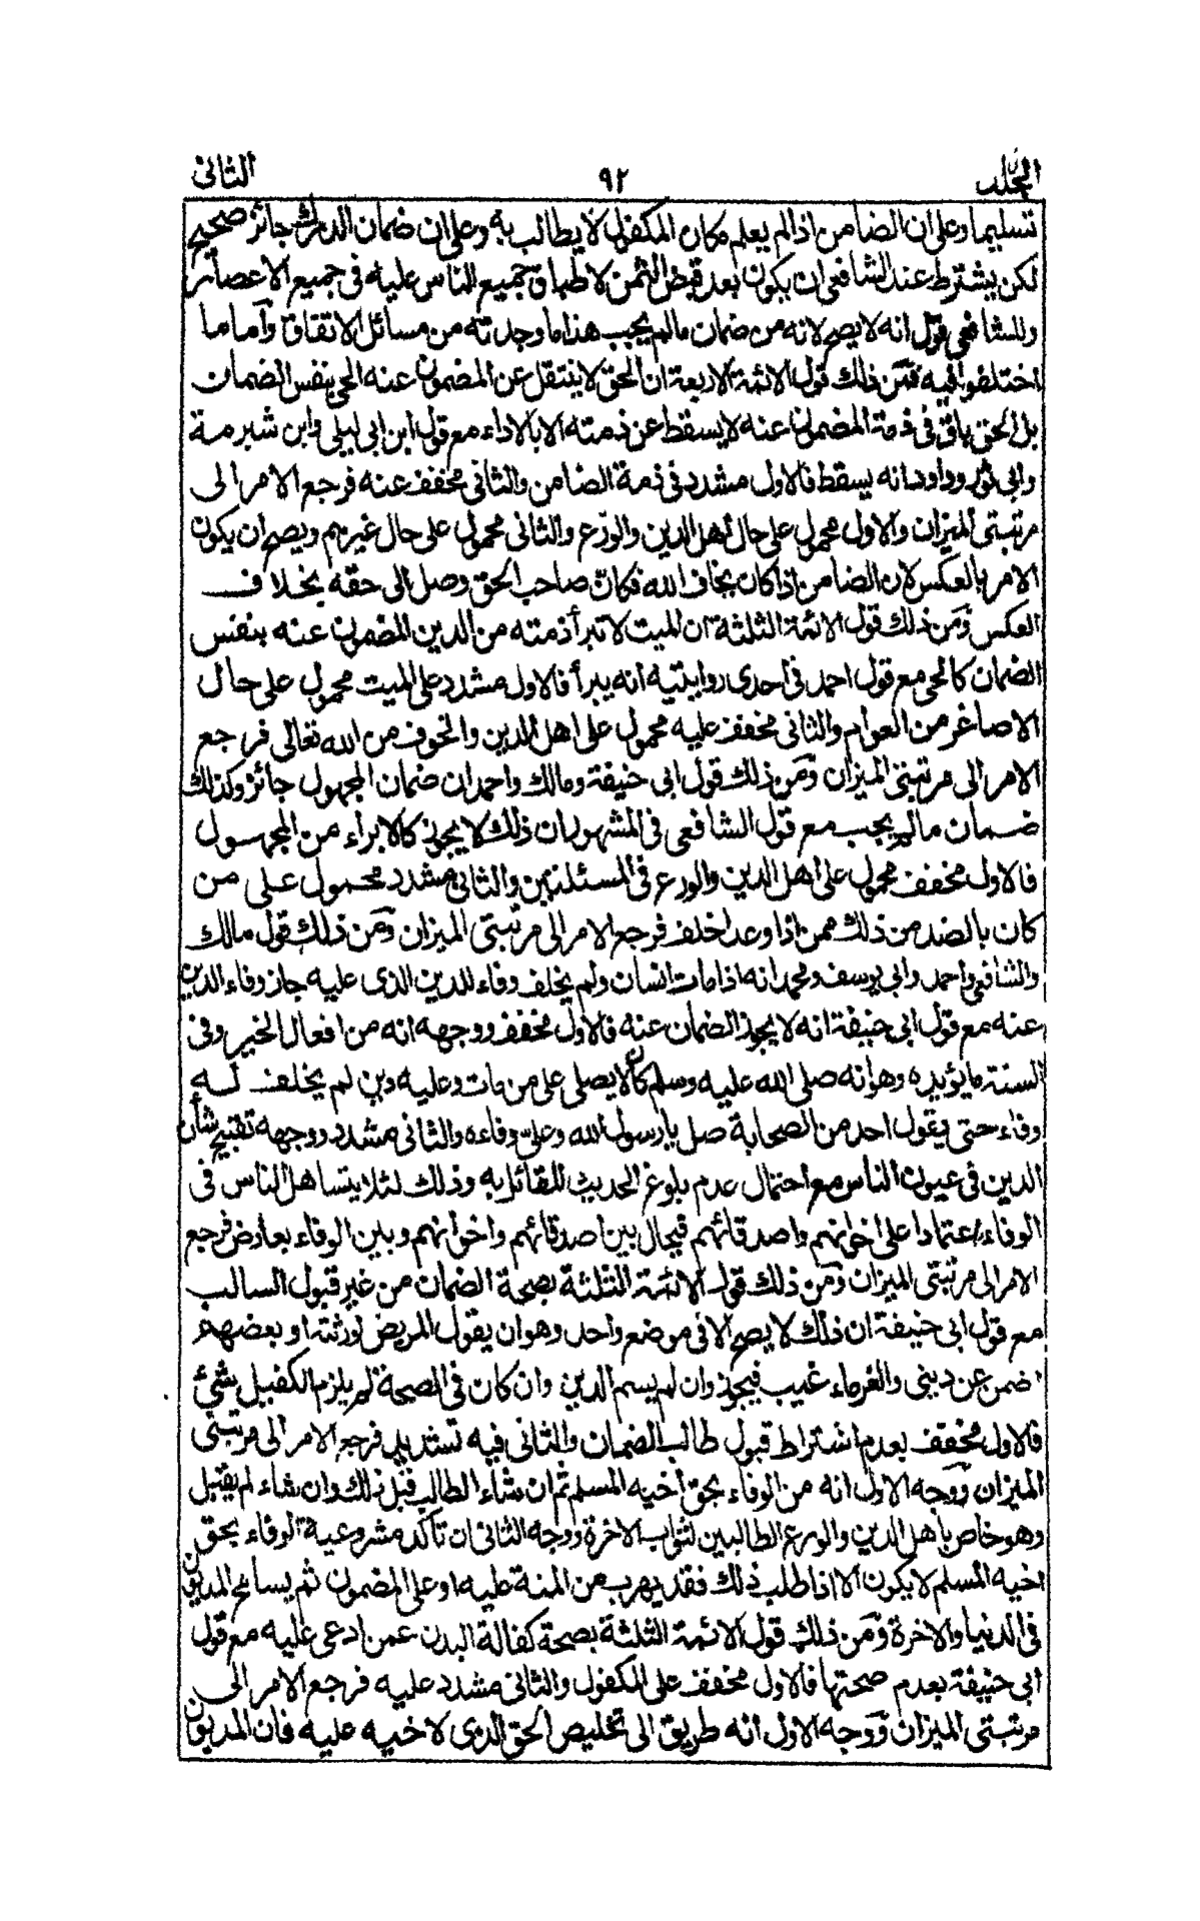 المجلد ٩٢ الثانى
تسليما وعلى ان الضامن اذا لم يعلم مكان المكفول لا يطالب به وعلى ان ضمان الدرك جائز صحيح
لكن يشترط عند الشافعى ان يكون بعد قبض الثمن لاطباق جميع الناس عليه فى جميع الاعصار
وللشافعى قول انه لا يصح لانه من ضمان مالم يجب هذا ما وجدته من مسائل الاتفاق وآما ما
اختلفوا فيه فمن ذلك قول الائمة الاربعة ان الحق لا ينتقل عن المضمون عنه الحى بنفس الضمان
بل الحق باق فى ذمة المضمون عنه لا يسقط عن ذمته الا بالاداء مع قول ابن ابى ليلى وابن شبرمة
وابى ثور وداود انه يسقط فالاول مشدد فى ذمة الضامن والثانى مخفف عنه فرجع الامر الى
مرتبتى الميزان والاول محمول على حال اهل الدين والورع والثانى محمول على حال غيرهم ويصح ان يكون
الامر بالعكس لان الضامن اذا كان يخاف الله فكانّ صاحب الحق وصل الى حقه بخلاف
العكس ومن ذلك قول الائمة الثلثة ان الميت لا تبرأ ذمته من الدين المضمون عنه بنفس
الضمان كالحى مع قول احمد فى احدى روايتيه انه يبرأ فالاول مشدد على الميت محمول على حال
الاصاغر من العوام والثانى مخفف عليه محمول على اهل الدين والخوف من الله تعالى فرجع
الامر الى مرتبتى الميزان ومن ذلك قول ابى حنيفة ومالك واحمد ان ضمان المجهول جائز وكذلك
ضمان مالم يجب مع قول الشافعى فى المشهور ان ذلك لا يجوز كالابراء من المجهول
فالاول مخفف محمول على اهل الدين والورع فى المسئلتين والثانى مشدد محمول على من
كان بالضد من ذلك ممن اذا وعد اخلف فرجع الامر الى مرتبتى الميزان ومن ذلك قول مالك
والشافعى واحمد وابى يوسف ومحمد انه اذا مات انسان ولم يخلف وفاء للدين الذى عليه جاز وفاء الدين
عنه مع قول ابى حنيفة انه لا يجوز الضمان عنه فالاول مخفف ووجهه انه من افعال الخير وفى
السنة ما يؤيده وهو انه صلى الله عليه وسلم كان لا يصلى على من مات وعليه دين لم يخلف له
وفاء حتى يقول احد من الصحابة صل يا رسول الله وعلىّ وفاءه والثانى مشدد ووجهه تقبيح شأن
الدين فى عيون الناس مع احتمال عدم بلوغ الحديث للقائل به وذلك لئلا يتساهل الناس فى
الوفاء اعتمادا على اخوانهم واصدقائهم فيحال بين اصدقائهم واخوانهم وبين الوفاء بعارض فرجع
الامر الى مرتبتى الميزان ومن ذلك قول الائمة الثلثة بصحة الضمان من غير قبول السالب
مع قول ابى حنيفة ان ذلك لا يصح الا فى موضع واحد وهو ان يقول المريض لورثته او بعضهم
اضمن عن دينى والغرماء غيب فيجوز وان لم يسم الدين وان كان فى الصحة لم يلزم الكفيل بشئ
فالاول مخفف بعدم اشتراط قبول طالب الضمان والثانى فيه تشديد فرجع الامر الى مرتبتى
الميزان ووجه الاول انه من الوفاء بحق اخيه المسلم ثم ان شاء الطالب قبل ذلك وان شاء لم يقبل
وهو خاص باهل الدين والورع الطالبين لثواب الاخرة ووجه الثانى ان تأكد مشروعية الوفاء بحق
اخيه المسلم لا يكون الا اذا طلب ذلك فقد يهرب من المنة عليه او على المضمون ثم يسامح المديون
فى الدنيا والاخرة ومن ذلك قول الائمة الثلثة بصحة كفالة البدن عمن ادعى عليه مع قول
ابى حنيفة بعدم صحتها فالاول مخفف على المكفول والثانى مشدد عليه فرجع الامر الى
مرتبتى الميزان ووجه الاول انه طريق الى تخليص الحق الذى لاخيه عليه فان المديون